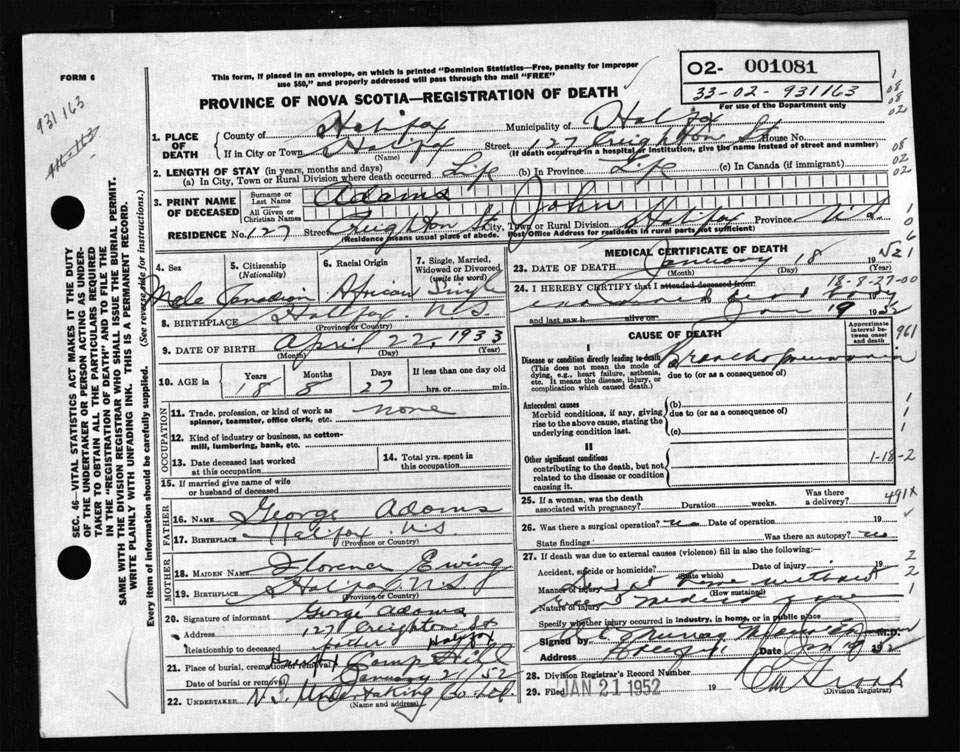 FORM 6
This form, if placed in an envelope, on which is printed "Dominion Statistics—Free, penalty for improper
use $50," and properly addressed will pass through the mail "FREE"
PROVINCE OF NOVA SCOTIA—REGISTRATION OF DEATH
02- 001081
33-02-931163
For use of the Department only
931163
1. PLACE OF DEATH
County of Halifax Municipality of Halifax
If in City or Town Halifax (Name) Street 127 Creighton St House No.
(If death occurred in a hospital or institution, give the name instead of street and number)
2. LENGTH OF STAY (in years, months and days)
(a) In City, Town or Rural Division where death occurred Life (b) In Province Life (c) In Canada (if immigrant)
3. PRINT NAME OF DECEASED
Surname or Last Name Adams
All Given or Christian Names John
RESIDENCE No. 127 Street Creighton St City, Town or Rural Division Halifax Province N S
(Residence means usual place of abode. Post Office Address for residents of rural parts not sufficient)
4. Sex Male
5. Citizenship (Nationality) Canadian
6. Racial Origin African
7. Single, Married, Widowed or Divorced (write the word) Single
8. BIRTHPLACE Halifax N.S.
(Province or Country)
9. DATE OF BIRTH April 22, 1933
(Month) (Day) (Year)
10. AGE in Years 18 Months 8 Days 27 If less than one day old hrs. or min.
OCCUPATION
11. Trade, profession, or kind of work as spinner, teamster, office clerk, etc. none
12. Kind of industry or business, as cotton-mill, lumbering, bank, etc.
13. Date deceased last worked at this occupation
14. Total yrs. spent in this occupation
15. If married give name of wife or husband of deceased
FATHER
16. NAME George Adams
17. BIRTHPLACE Halifax N.S
(Province or Country)
MOTHER
18. MAIDEN NAME Florence Ewing
19. BIRTHPLACE Halifax N.S
(Province or Country)
20. Signature of informant George Adams
Address 127 Creighton St Halifax
Relationship to deceased father
21. Place of burial, cremation or removal Camp Hill
Date of burial or removal January 21/52
22. UNDERTAKER N.S. Undertaking Co Ltd.
(Name and address)
MEDICAL CERTIFICATE OF DEATH
23. DATE OF DEATH January 18 19 52
(Month) (Day) (Year)
24. I HEREBY CERTIFY that I attended deceased from:
examined dead body
and last saw h alive on Jan 19 1952
CAUSE OF DEATH
Approximate interval between onset and death
I
Disease or condition directly leading to death
(This does not mean the mode of dying, e.g., heart failure, asthenia, etc. It means the disease, injury, or complication which caused death.)
Broncho pneumonia
due to (or as a consequence of)
Antecedent causes
Morbid conditions, if any, giving rise to the above cause, stating the underlying condition last.
(b)
due to (or as a consequence of)
(c)
II
Other significant conditions
contributing to the death, but not related to the disease or condition causing it.
1-18-2
25. If a woman, was the death associated with pregnancy? Duration weeks. Was there a delivery?
491X
26. Was there surgical operation? no Date of operation 19
State findings Was there an autopsy? no
27. If death was due to external causes (violence) fill in also the following:—
Accident, suicide or homicide? (State which) Date of injury 19
Manner of injury Died at home without
(How sustained)
Nature of injury medical care
Specify whether injury occurred in industry, in home, or in public place
Signed by M.D.
Address Halifax Date Jan 19 1952
28. Division Registrar's Record Number
29. Filed JAN 21 1952 19
(Division Registrar)
SEC. 46—VITAL STATISTICS ACT MAKES IT THE DUTY
OF THE UNDERTAKER OR PERSON ACTING AS UNDER-
TAKER TO OBTAIN ALL THE PARTICULARS REQUIRED
IN THE "REGISTRATION OF DEATH" AND TO FILE THE
SAME WITH THE DIVISION REGISTRAR WHO SHALL ISSUE THE BURIAL PERMIT.
WRITE PLAINLY WITH UNFADING INK. THIS IS A PERMANENT RECORD.
Every item of information should be carefully supplied. (See reverse side for instructions.)